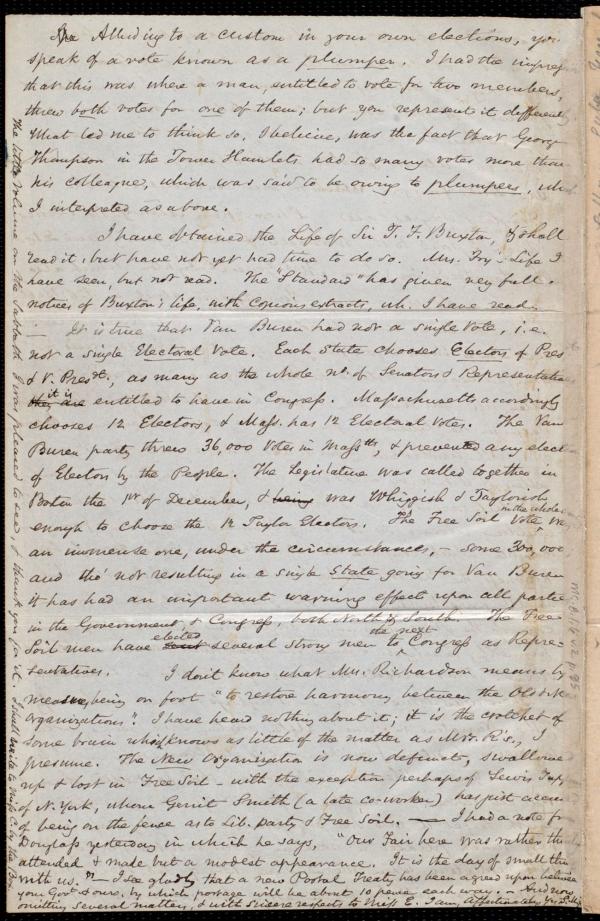 Alluding to a custom in your own elections, you
speak of a vote known as a plumper. I had the impres
that this was where a man, entitled to vote for two members,
threw both votes for one of them; but you represent it differently
What led me to think so, I believe, was the fact that George
Thompson in the Tower Hamlets had so many votes more than
his colleague, which was said to be owing to plumpers, which
I interpreted as above.
I have obtained the Life of Sir T. F. Buxton, & shall
read it, but have not yet had time to do so. Mrs. Fry's Life I
have seen, but not read. The "Standard" has given very full
notices of Buxton's life, with copious extracts, wh. I have read.
— It is true that Van Buren had not a single vote, i.e.
not a single Electoral vote. Each State chooses Electors of Pres
& V. Presdt., as many as the whole no. of Senators & Representative
they are it is entitled to have in Congress. Massachusetts accordingly
chooses 12 Electors, & Mass. has 12 Electoral votes. The Van
Buren party threw 36,000 votes in Masstts, & prevented any elect
of Electors by the People. The Legislature was called together in
Boston the 1st of December, & being was Whiggish & Taylorish
enough to choose the 12 Taylor Electors. The Free Soil Vote, in the whole
an immense one, under the circumstances, – some 300,000
and tho' not resulting in a single State going for Van Buren
it has had an important warning effect upon all parties
in the Government & Congress, both North & South. The Free
Soil men have elected several strong men to the next Congress as Repre-
sentatives. I don't know what Mrs. Richardson means by
measures being on foot "to restore harmony between the Old & N
organizations". I have heard nothing about it; it is the crotchet of
some brain wh. knows as little of the matter as Mrs. R's., I
presume. The New Organization is now defunct, swallowed
up & lost in Free Soil – with the exception perhaps of Lewis Tapp
of N. York, whom Gerrit Smith (a late co-worker) has just accused
of being on the fence as to Lib. party & Free Soil. — I had a note fr
Douglass yesterday in which he says, "Our Fair here was rather thin
attended & made but a modest appearance. It is the day of small thin
with us." — I see gladly that a new Postal Treaty has been agreed upon between
your Govt. & ours, by which postage will be about 10 pence each way. – And now
omitting several matters, & with sincere respects to Miss E. I am, Affectionately Yr.
The little volume on the Sabbath I was pleased to see, & thank you for it. I shall write to Miss C. by the Box.